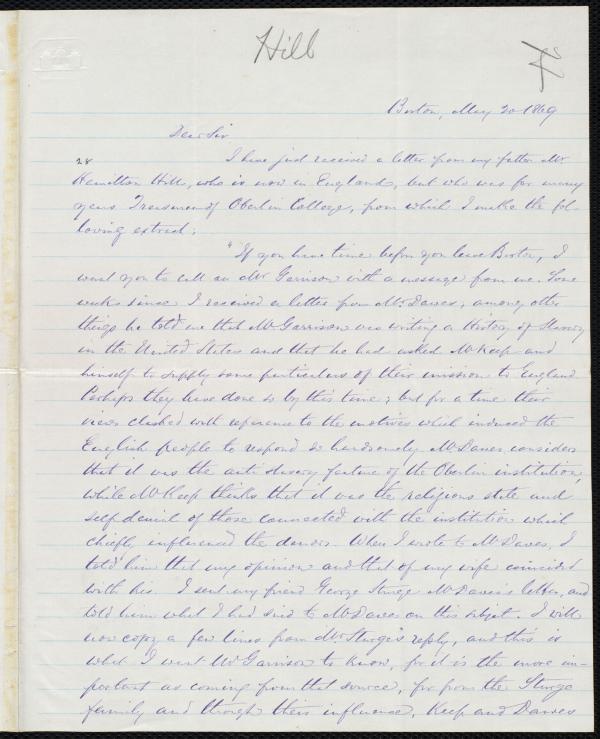 Hill
Boston, May 20 1869
Dear Sir
28
I have just received a letter from my father Mr
Hamilton Hill, who is now in England, but who was for many
years Treasurer of Oberlin College, from which I make the fol-
lowing extract:
"If you have time before you leave Boston, I
want you to call on Mr Garrison with a message from me. Some
weeks since I received a letter from Mr. Dawes; among other
things he told me that Mr Garrison was writing a History of Slavery
in the United States and that he had asked Mr Keep and
himself to supply some particulars of their mission to England
Perhaps they have done so by this time; but for a time their
views clashed with reference to the motives which induced the
English people to respond so handsomely. Mr Dawes considers
that it was the anti slavery feature of the Oberlin institution,
while Mr Keep thinks that it was the religious state and
self denial of those connected with the institution which
chiefly influenced the donors. When I wrote to Mr Dawes, I
told him that my opinion and that of my wife coincided
with his. I sent my friend George Sturge Mr Dawes's letter, and
told him what I had said to Mr Dawes on this subject. I will
now copy a few lines from Mr. Sturge's reply, and this is
what I want Mr Garrison to know, for it is the more im-
portant as coming from that source, for from the Sturge
family and through their influence, Keep and Dawes